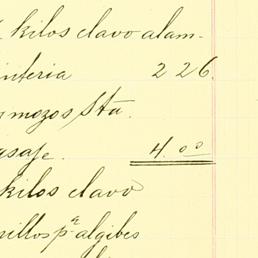 kilos clavo alam-
interia 2 26.
mozos Sta.
saje. 4.00
kilos clavo
rillos pª algibes